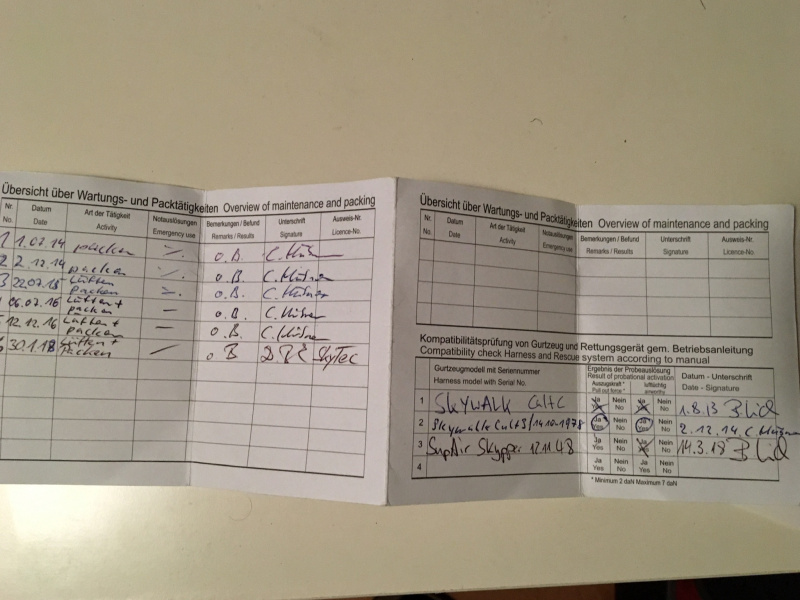 Übersicht über Wartungs- und Packtätigkeiten Overview of maintenance and packing
Nr. Datum Art der Tätigkeit Notauslösungen Bemerkungen / Befund Unterschrift Ausweis-Nr.
No. Date Activity Emergency use Remarks / Results Signature Licence-No.
1 1.07.14 packen o.B.
2 2.12.14 packen o.B.
3 22.07.15 Lüften packen o.B.
06.07.16 Lüften + packen — o.B.
12.12.16 Lüften + packen — o.B.
30.1.18 Lüften + packen — o B SkyTec
Übersicht über Wartungs- und Packtätigkeiten Overview of maintenance and packing
Nr. Datum Art der Tätigkeit Notauslösungen Bemerkungen / Befund Unterschrift Ausweis-Nr.
No. Date Activity Emergency use Remarks / Results Signature Licence-No.
Kompatibilitätsprüfung von Gurtzeug und Rettungsgerät gem. Betriebsanleitung
Compatibility check Harness and Rescue system according to manual
Gurtzeugmodell mit Seriennummer Ergebnis der Probeauslösung Datum - Unterschrift
Harness model with Serial No. Result of probational activation Date - Signature
Auszugskraft *
Pull out force *
1 SKYWALK CultC Ja Nein Ja Nein 1.8.13
Yes No Yes No
2 Skywalk Cult3/14.10.1978 Ja Nein Ja Nein 2.12.14
Yes No Yes No
3 SupAir Skypper 12.11.48 Ja Nein Ja Nein 14.3.18
Yes No Yes No
4 Ja Nein Ja Nein
Yes No Yes No
* Minimum 2 daN Maximum 7 daN